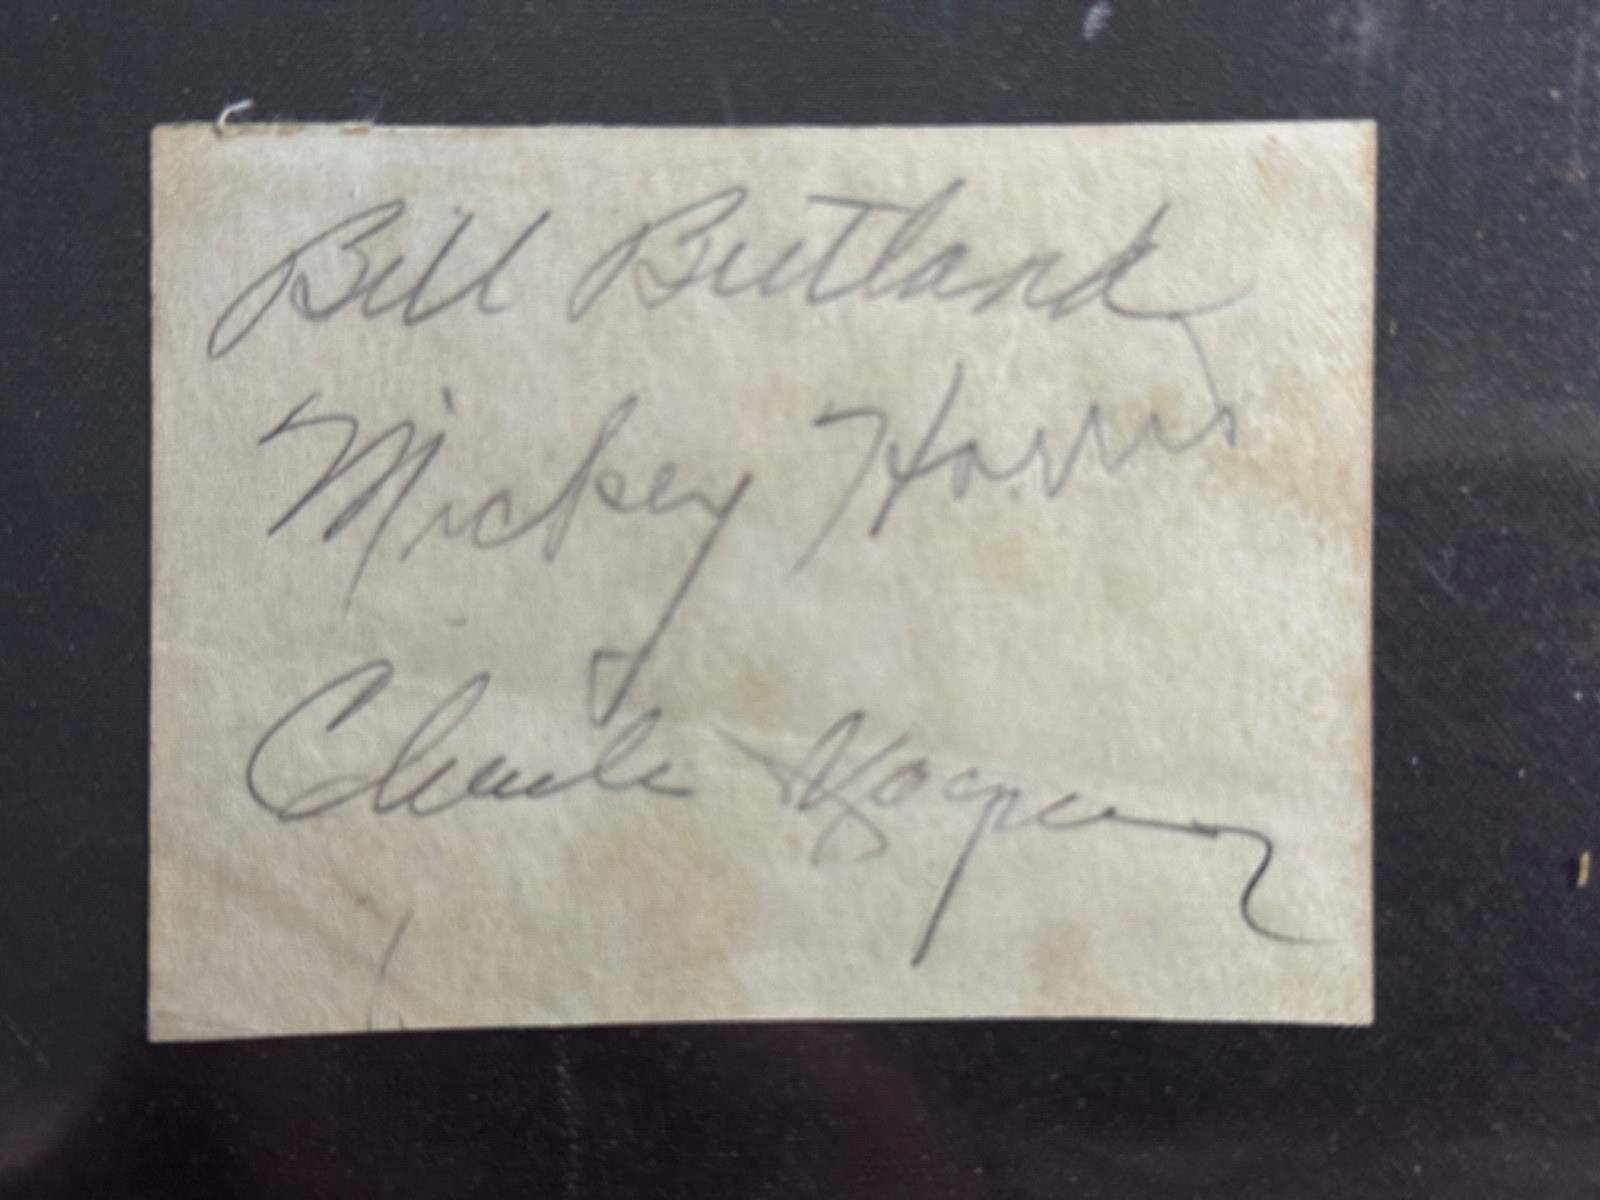 Bill Butland
Mickey Harris
Charlie Wagner